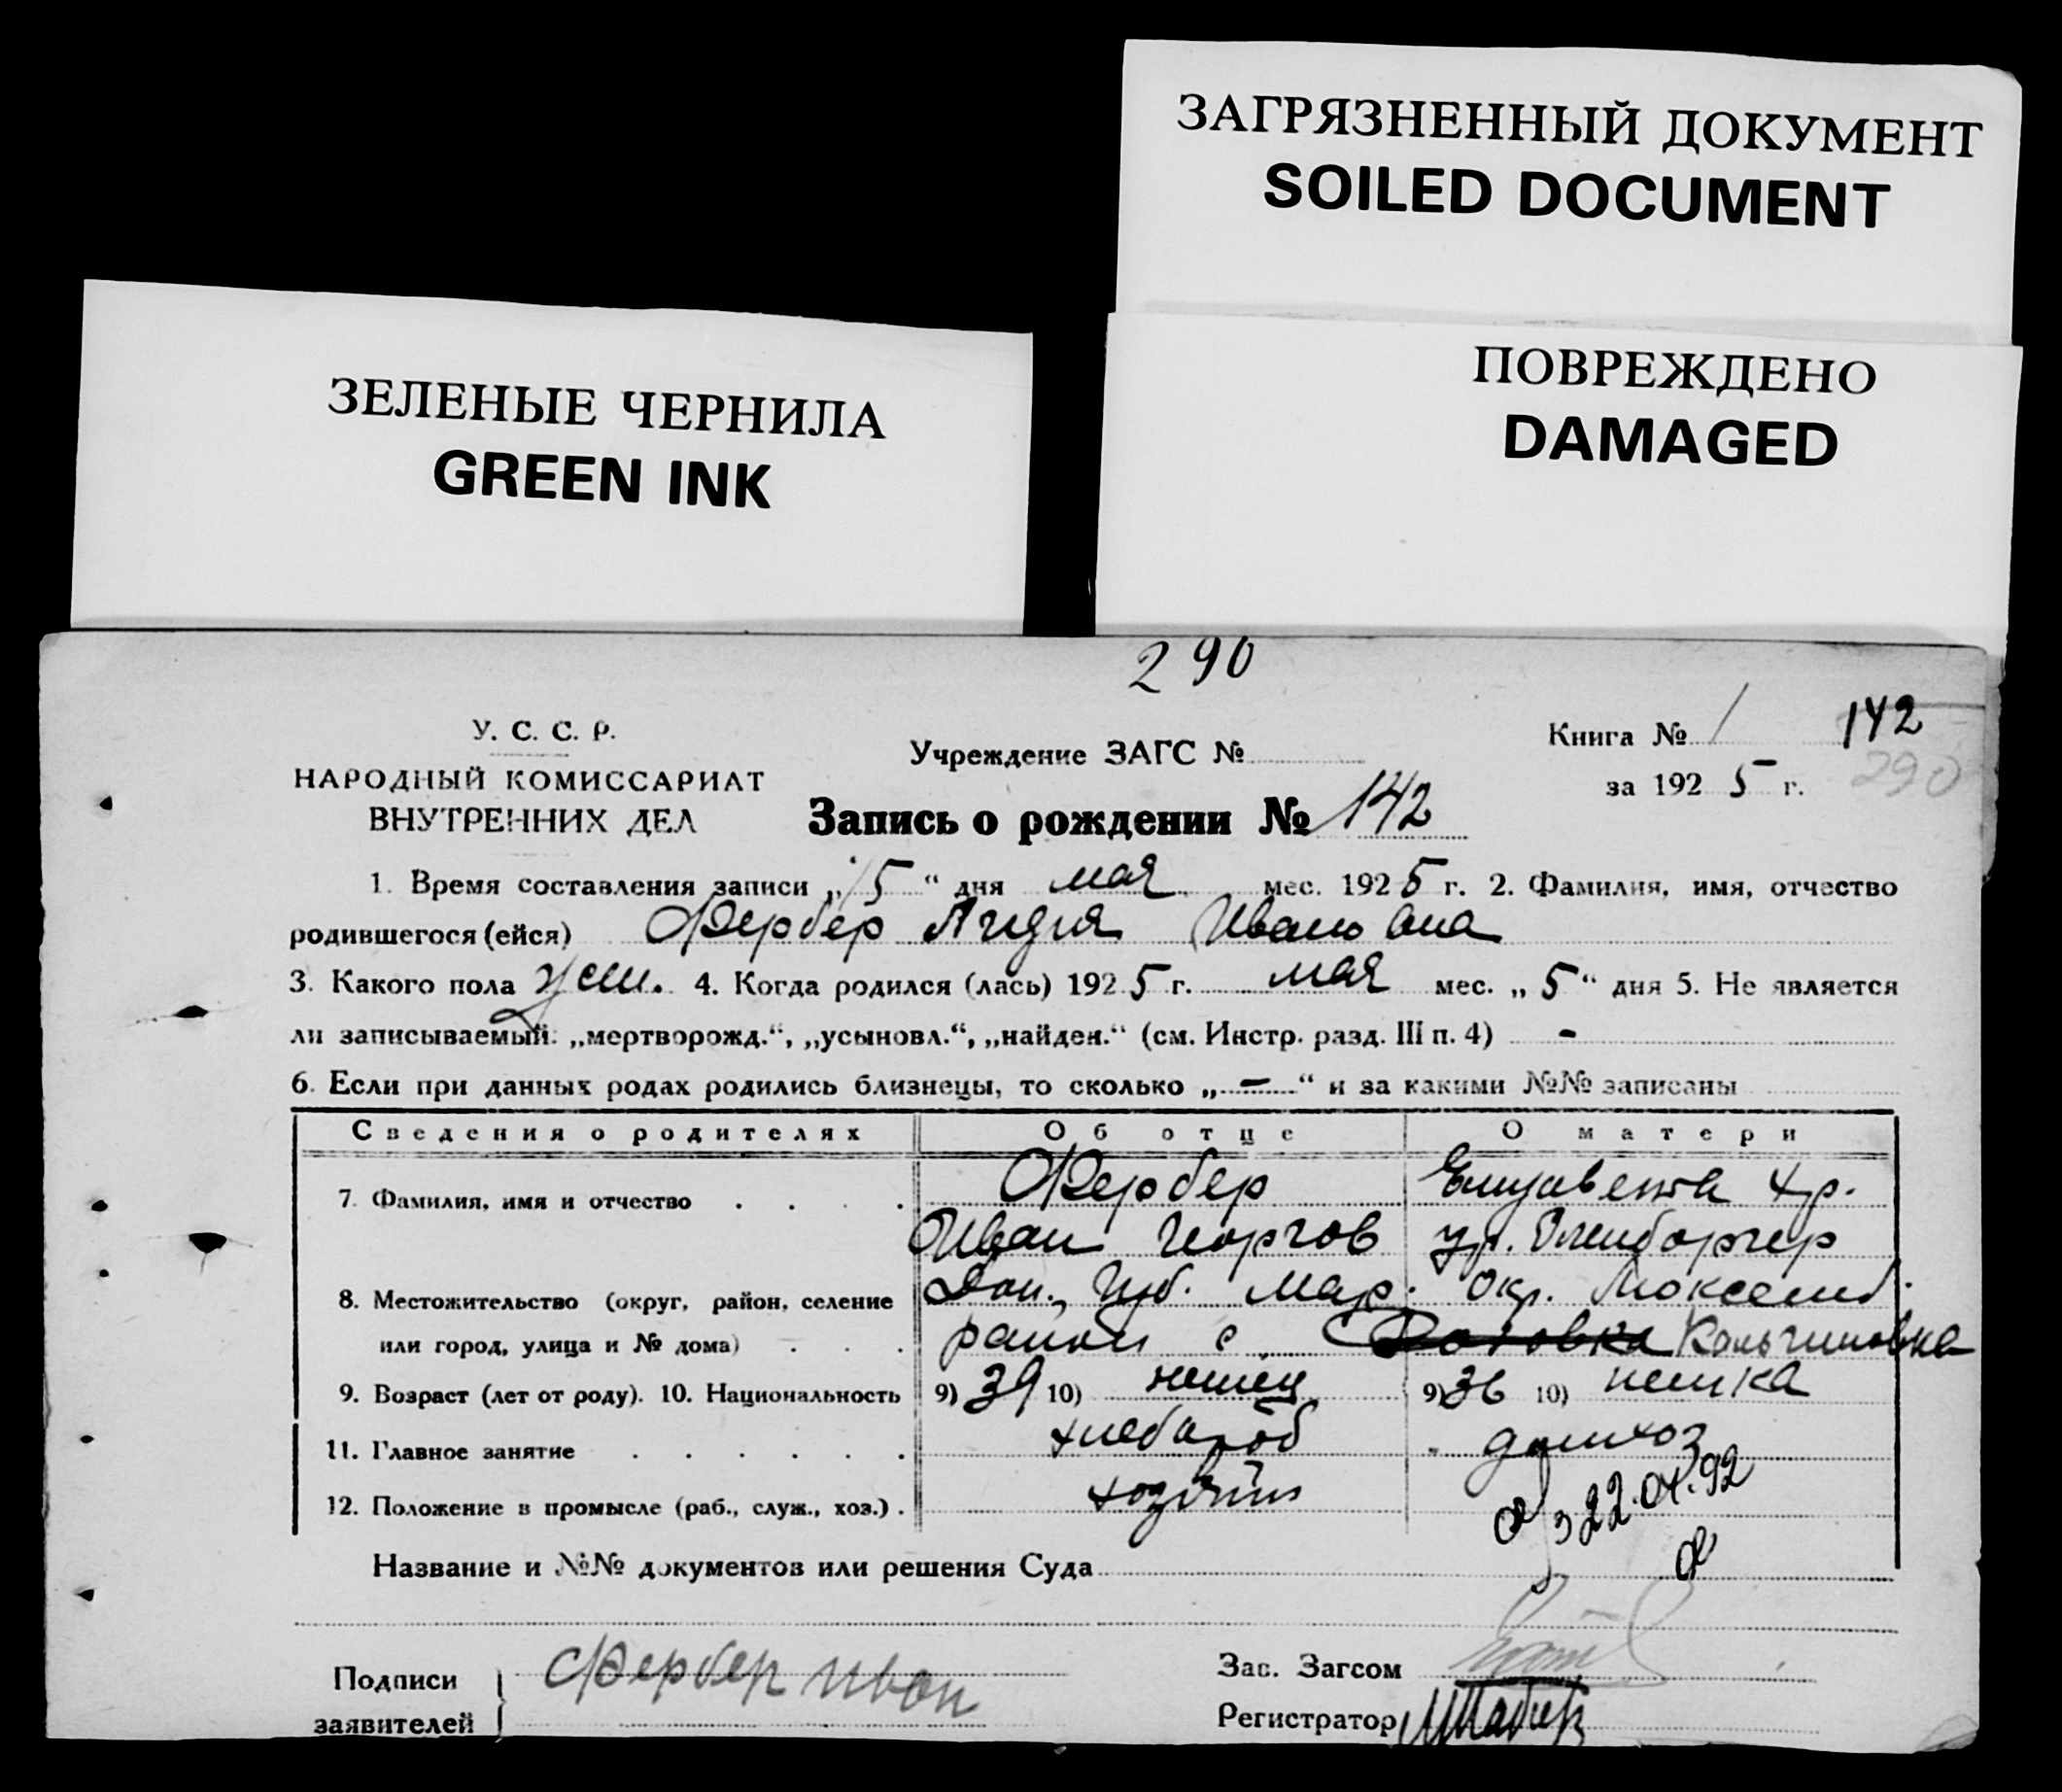 ЗАГРЯЗНЕННЫЙ ДОКУМЕНТ
SOILED DOCUMENT
ПОВРЕЖДЕНО
DAMAGED
ЗЕЛЕНЫЕ ЧЕРНИЛА
GREEN INK
290
У. С. С. Р.
НАРОДНЫЙ КОМИССАРИАТ
ВНУТРЕННИХ ДЕЛ
Учреждение ЗАГС №
Книга № 1 142
за 1925 г. 290
Запись о рождении № 142
1. Время составления записи „15“ дня мая мес. 1925 г. 2. Фамилия, имя, отчество
родившегося (ейся) Фербер Лидия Ивановна
3. Какого пола жен. 4. Когда родился (лась) 1925 г. мая мес. „5“ дня 5. Не является
ли записываемый: „мертворожд.“, „усыновл.“, „найден.“ (см. Инстр. разд. III п. 4) -
6. Если при данных родах родились близнецы, то сколько „-“ и за какими №№ записаны
Сведения о родителях Об отце О матери
7. Фамилия, имя и отчество Фербер Елизавета Хр.
Иван Георгов ур.
8. Местожительство (округ, район, селение Дон. Губ. Мар. Окр.
или город, улица и № дома) район с Кольчиновка
9. Возраст (лет от роду). 10. Национальность 9) 39 10) немец 9) 36 10) немка
11. Главное занятие хлебороб домхоз
12. Положение в промысле (раб., служ., хоз.) хозяин
22.04.92
Название и №№ документов или решения Суда
Подписи заявителей Фербер Иван
Зав. Загсом
Регистратор